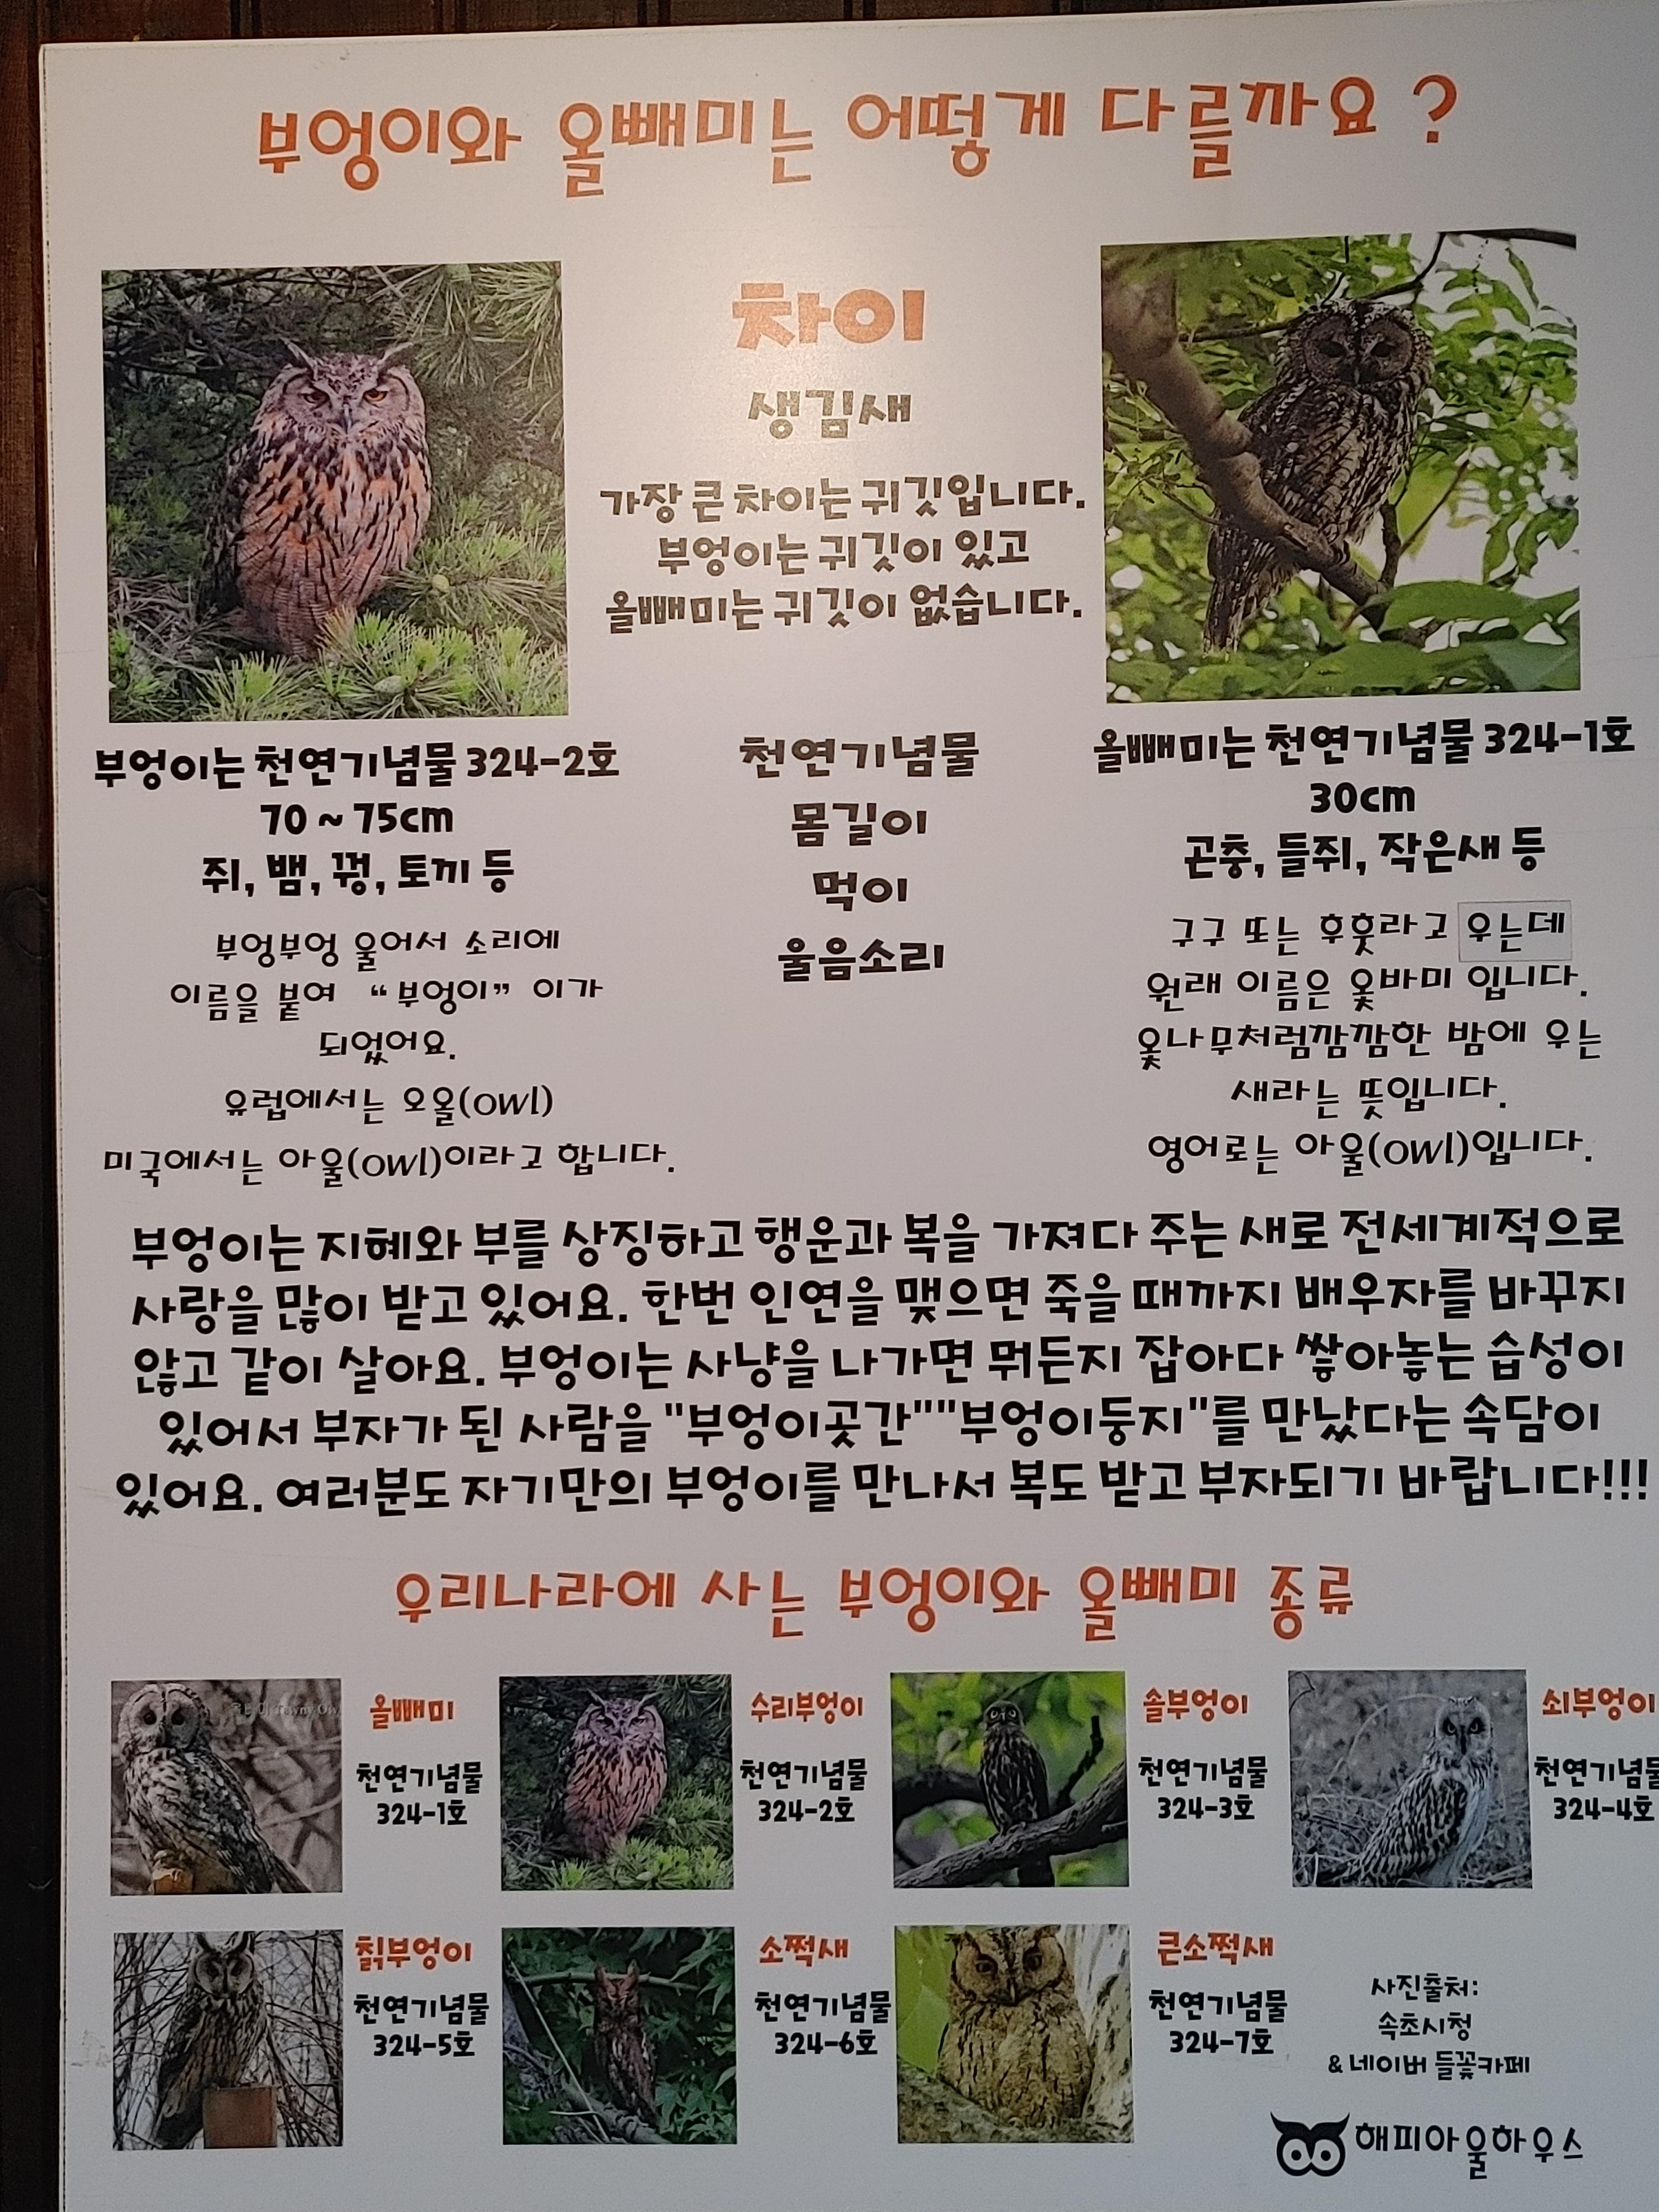 부엉이와 올빼미는 어떻게 다를까요 ?
차이
생김새
가장 큰 차이는 귀깃입니다.
부엉이는 귀깃이 있고
올빼미는 귀깃이 없습니다.
부엉이는 천연기념물 324-2호
70 ~ 75cm
쥐, 뱀, 꿩, 토끼 등
부엉부엉 울어서 소리에
이름을 붙여 “부엉이” 이가
되었어요.
유럽에서는 오올(owl)
미국에서는 아울(owl)이라고 합니다.
천연기념물
몸길이
먹이
울음소리
올빼미는 천연기념물 324-1호
30cm
곤충, 들쥐, 작은새 등
구구 또는 후훗라고 우는데
원래 이름은 옻바미 입니다.
옻나무처럼깜깜한 밤에 우는
새라는 뜻입니다.
영어로는 아울(owl)입니다.
부엉이는 지혜와 부를 상징하고 행운과 복을 가져다 주는 새로 전세계적으로
사랑을 많이 받고 있어요. 한번 인연을 맺으면 죽을 때까지 배우자를 바꾸지
않고 같이 살아요. 부엉이는 사냥을 나가면 뭐든지 잡아다 쌓아놓는 습성이
있어서 부자가 된 사람을 "부엉이곳간""부엉이둥지"를 만났다는 속담이
있어요. 여러분도 자기만의 부엉이를 만나서 복도 받고 부자되기 바랍니다!!!
우리나라에 사는 부엉이와 올빼미 종류
Tawny Owl
올빼미
천연기념물
324-1호
수리부엉이
천연기념물
324-2호
솔부엉이
천연기념물
324-3호
쇠부엉이
천연기념물
324-4호
칡부엉이
천연기념물
324-5호
소쩍새
천연기념물
324-6호
큰소쩍새
천연기념물
324-7호
사진출처:
속초시청
& 네이버 들꽃카페
해피아울하우스